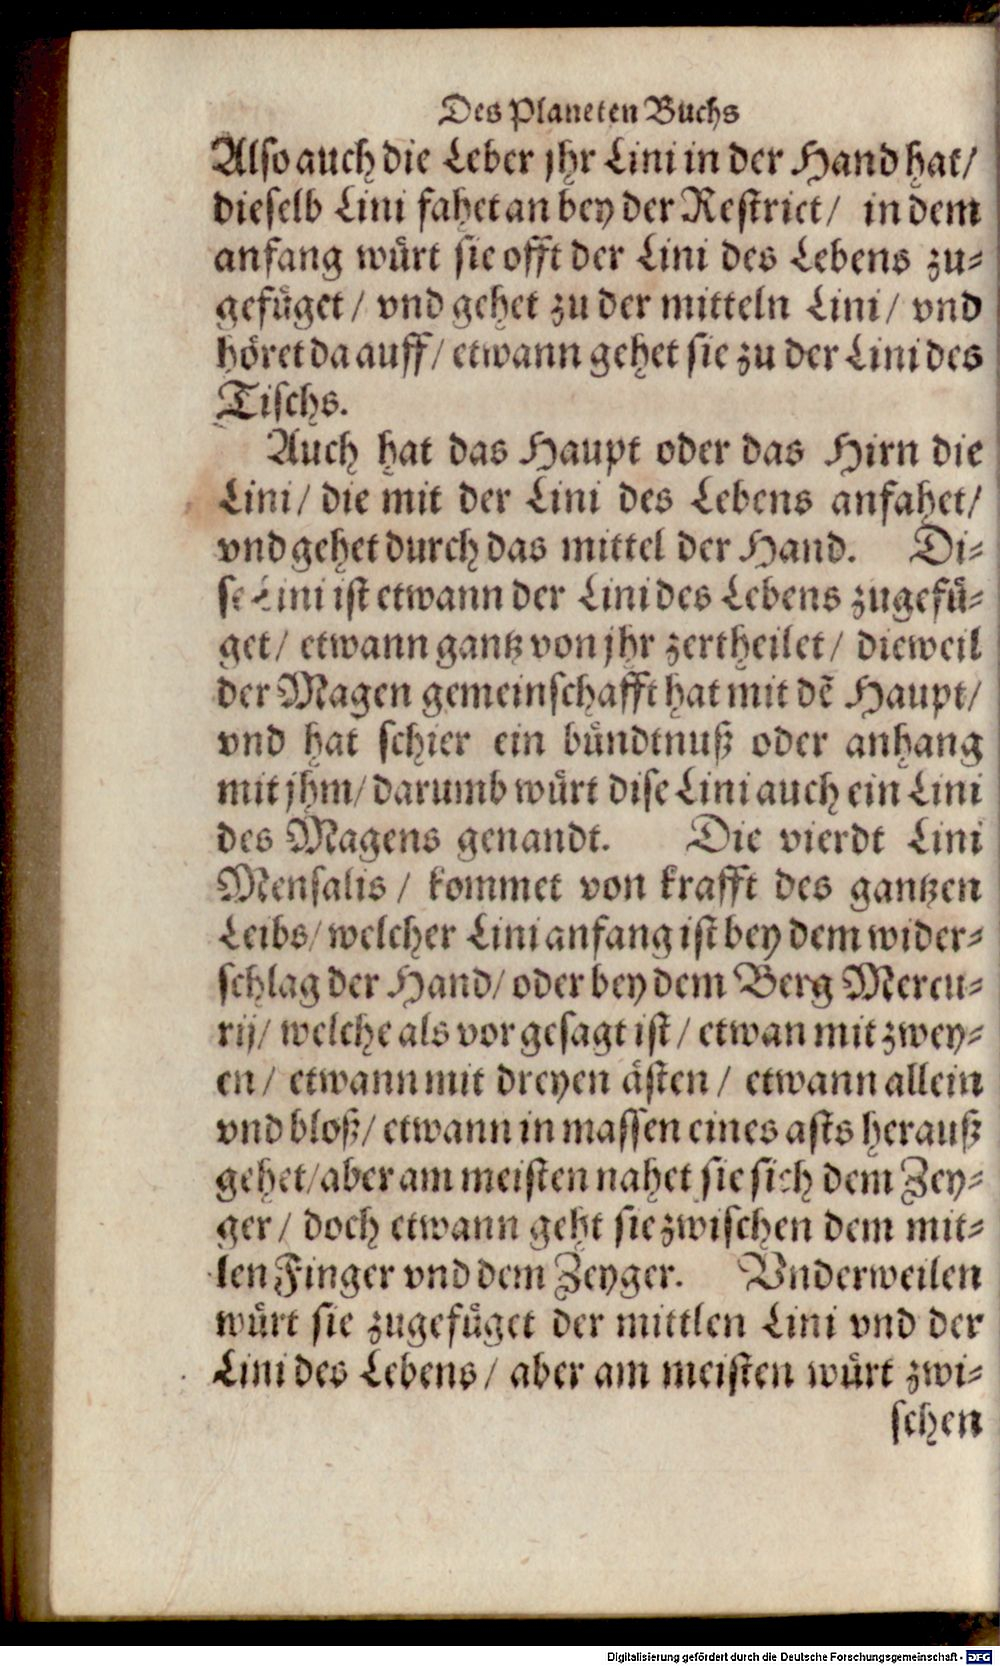 Des Planeten Buchs
Also auch die Leber jhr Lini in der Hand hat/
dieselb Lini fahet an bey der Restrict/ in dem
anfang würt sie offt der Lini des Lebens zu-
gefüget/ vnd gehet zu der mitteln Lini/ vnd
höret da auff/ etwann gehet sie zu der Lini des
Tischs.
Auch hat das Haupt oder das Hirn die
Lini/ die mit der Lini des Lebens anfahet/
vnd gehet durch das mittel der Hand. Di-
se Lini ist etwann der Lini des Lebens zugefü-
get/ etwann gantz von jhr zertheilet/ dieweil
der Magen gemeinschafft hat mit dē Haupt/
vnd hat schier ein bündtnuß oder anhang
mit jhm/ darumb würt dise Lini auch ein Lini
des Magens genandt. Die vierdt Lini
Mensalis/ kommet von krafft des gantzen
Leibs/ welcher Lini anfang ist bey dem wider-
schlag der Hand/ oder bey dem Berg Mercu-
rij/ welche als vor gesagt ist/ etwan mit zwey-
en/ etwann mit dreyen ästen/ etwann allein
vnd bloß/ etwann in massen eines asts herauß
gehet/ aber am meisten nahet sie sich dem Zey-
ger/ doch etwann geht sie zwischen dem mit-
len Finger vnd dem Zeyger. Vnderweilen
würt sie zugefüget der mittlen Lini vnd der
Lini des Lebens/ aber am meisten würt zwi-
schen
Digitalisierung gefördert durch die Deutsche Forschungsgemeinschaft - DFG